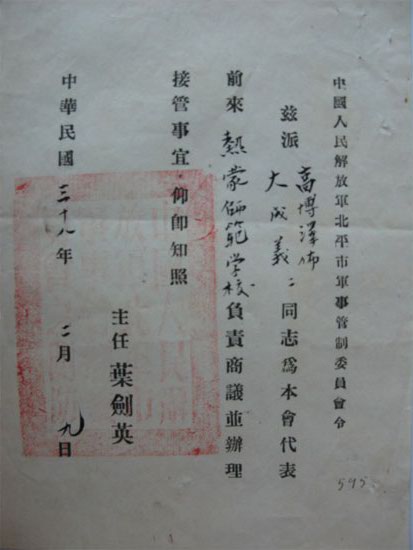 中國人民解放軍北平市軍事管制委員會令
茲派 高博澤佈
大成義 二同志爲本會代表
前來熱蒙师範学校負責商議並辦理
接管事宜·仰即知照
主任 葉劍英
中華民國三十八年 二月 九日
595